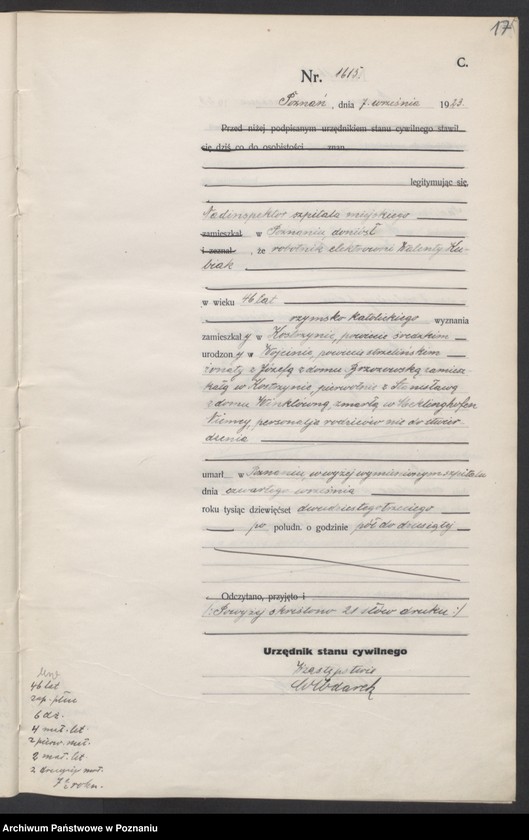 17
C.
Nr. 1615.
Poznań, dnia 7. września 1923.
Przed niżej podpisanym urzędnikiem stanu cywilnego stawił
się dziś co do osobistości znan
legitymując się
Nadinspektor szpitala miejskiego
zamieszkał w Poznaniu, doniósł
i zeznał, że robotnik elektrowni Walenty Ku-
biak
w wieku 46 lat
rzymsko katolickiego wyznania
zamieszkały w Kostrzynie, powiecie średzkim
urodzony w Wójcinie, powiecie strzelińskim
żonaty z Józefą z domu Brzozowską zamiesz-
kałą w Kostrzynie, pierwotnie z Stanisławą
z domu Winklówną, zmarłą w Recklinghofen
Niemcy, personalja rodziców nie do stwier-
dzenia
umarł w Poznaniu, w wyżej wymienionym szpitalu
dnia czwartego września
roku tysiąc dziewięćset dwudziestego trzeciego
po połudn. o godzinie pół do dziesiątej
Odczytano, przyjęto i
/: Powyżej skreślono 21 słów druku :/
Urzędnik stanu cywilnego
W zastępstwie
Włodarek
46 lat
zap. płuc
6 dz.
4 mał. let.
z pierw. mał.
2 mał. let.
z drugiego mał.